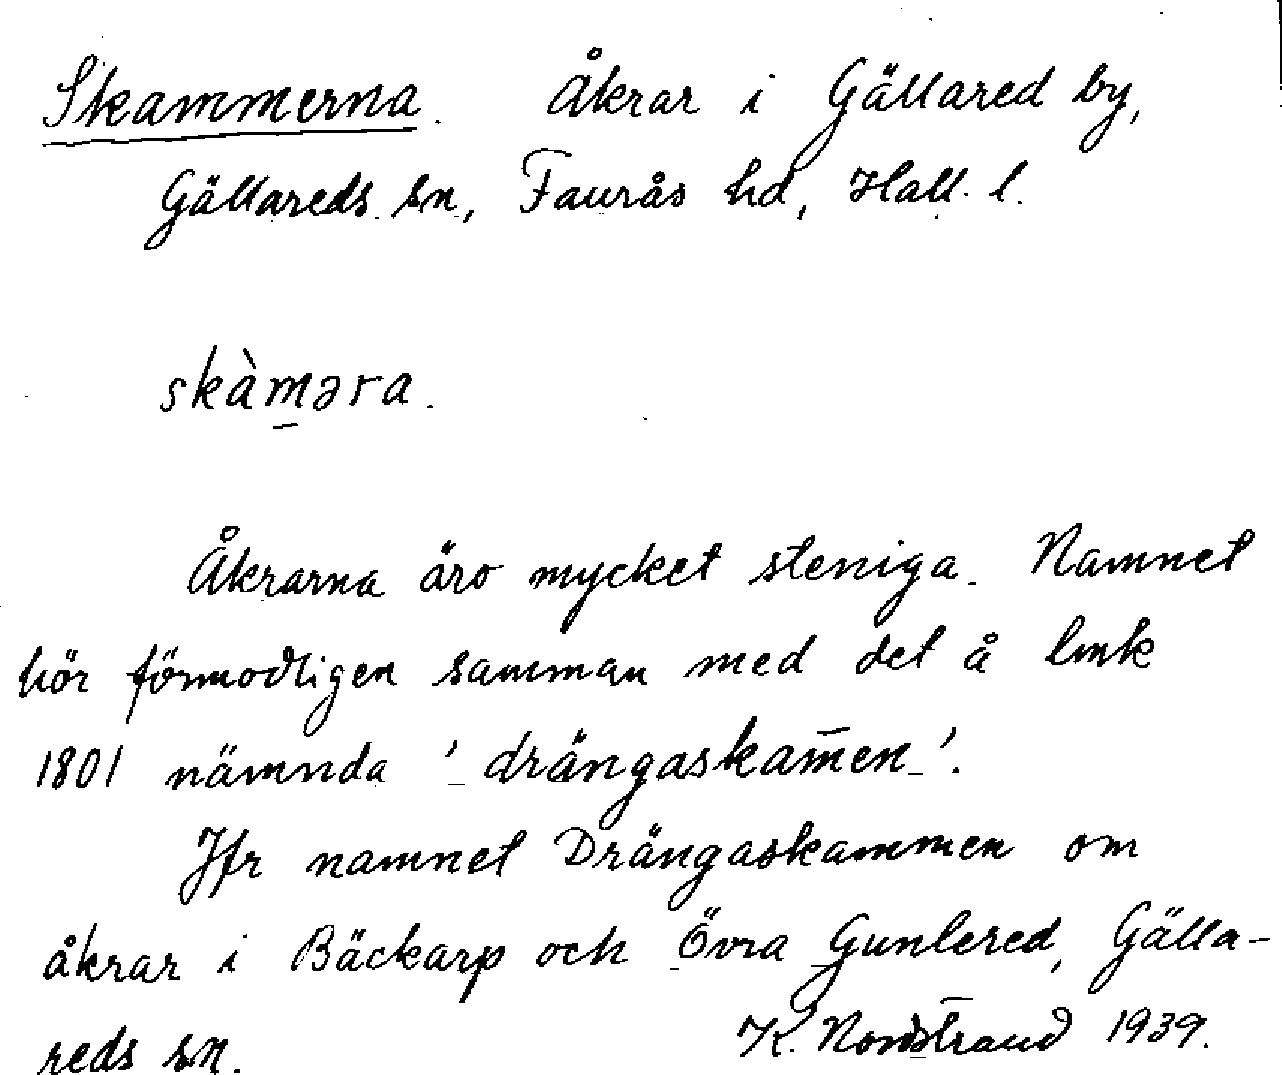 Skammerna. Åkrar i Gällared by,
Gällareds sn, Faurås hd, Hall. l.
skàməra.
Åkrarna äro mycket steniga. Namnet
hör förmodligen samman med det å lmk
1801 nämnda 'drängaskam̄en'.
Jfr namnet Drängaskammen om
åkrar i Bäckarp och Övra Gunlered, Gälla-
reds sn. K. Nordstrand 1939.